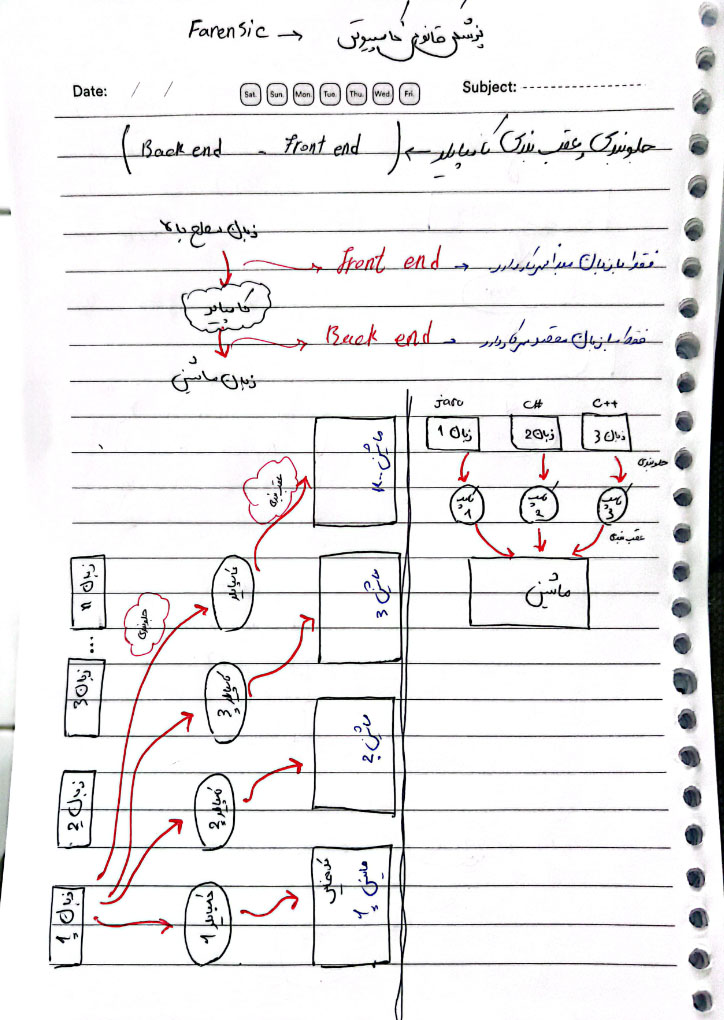 Farensic → پزشکی قانونی کامپیوتری
Date: / /
Sat. Sun. Mon. Tue. Thu. Wed. Fri.
Subject:
جلوبندی و عقب بندی کامپایلر ← (Back end - front end)
زبان سطح بالا
front end → فقط با زبان مبدا سر و کار دارد
کامپایلر
Back end → فقط با زبان مقصد سر و کار دارد
زبان ماشین
java C# C++
زبان 1 زبان 2 زبان 3
جلوبندی
کامپ 1 کامپ 2 کامپ 3
عقب بندی
ماشین
ماشین K
عقب بندی
زبان n
جلوبندی
کامپایلر
ماشین 3
...
زبان 3
کامپایلر 3
ماشین 2
زبان 2
کامپایلر 2
زبان 1
کامپایلر 1
ماشین 1